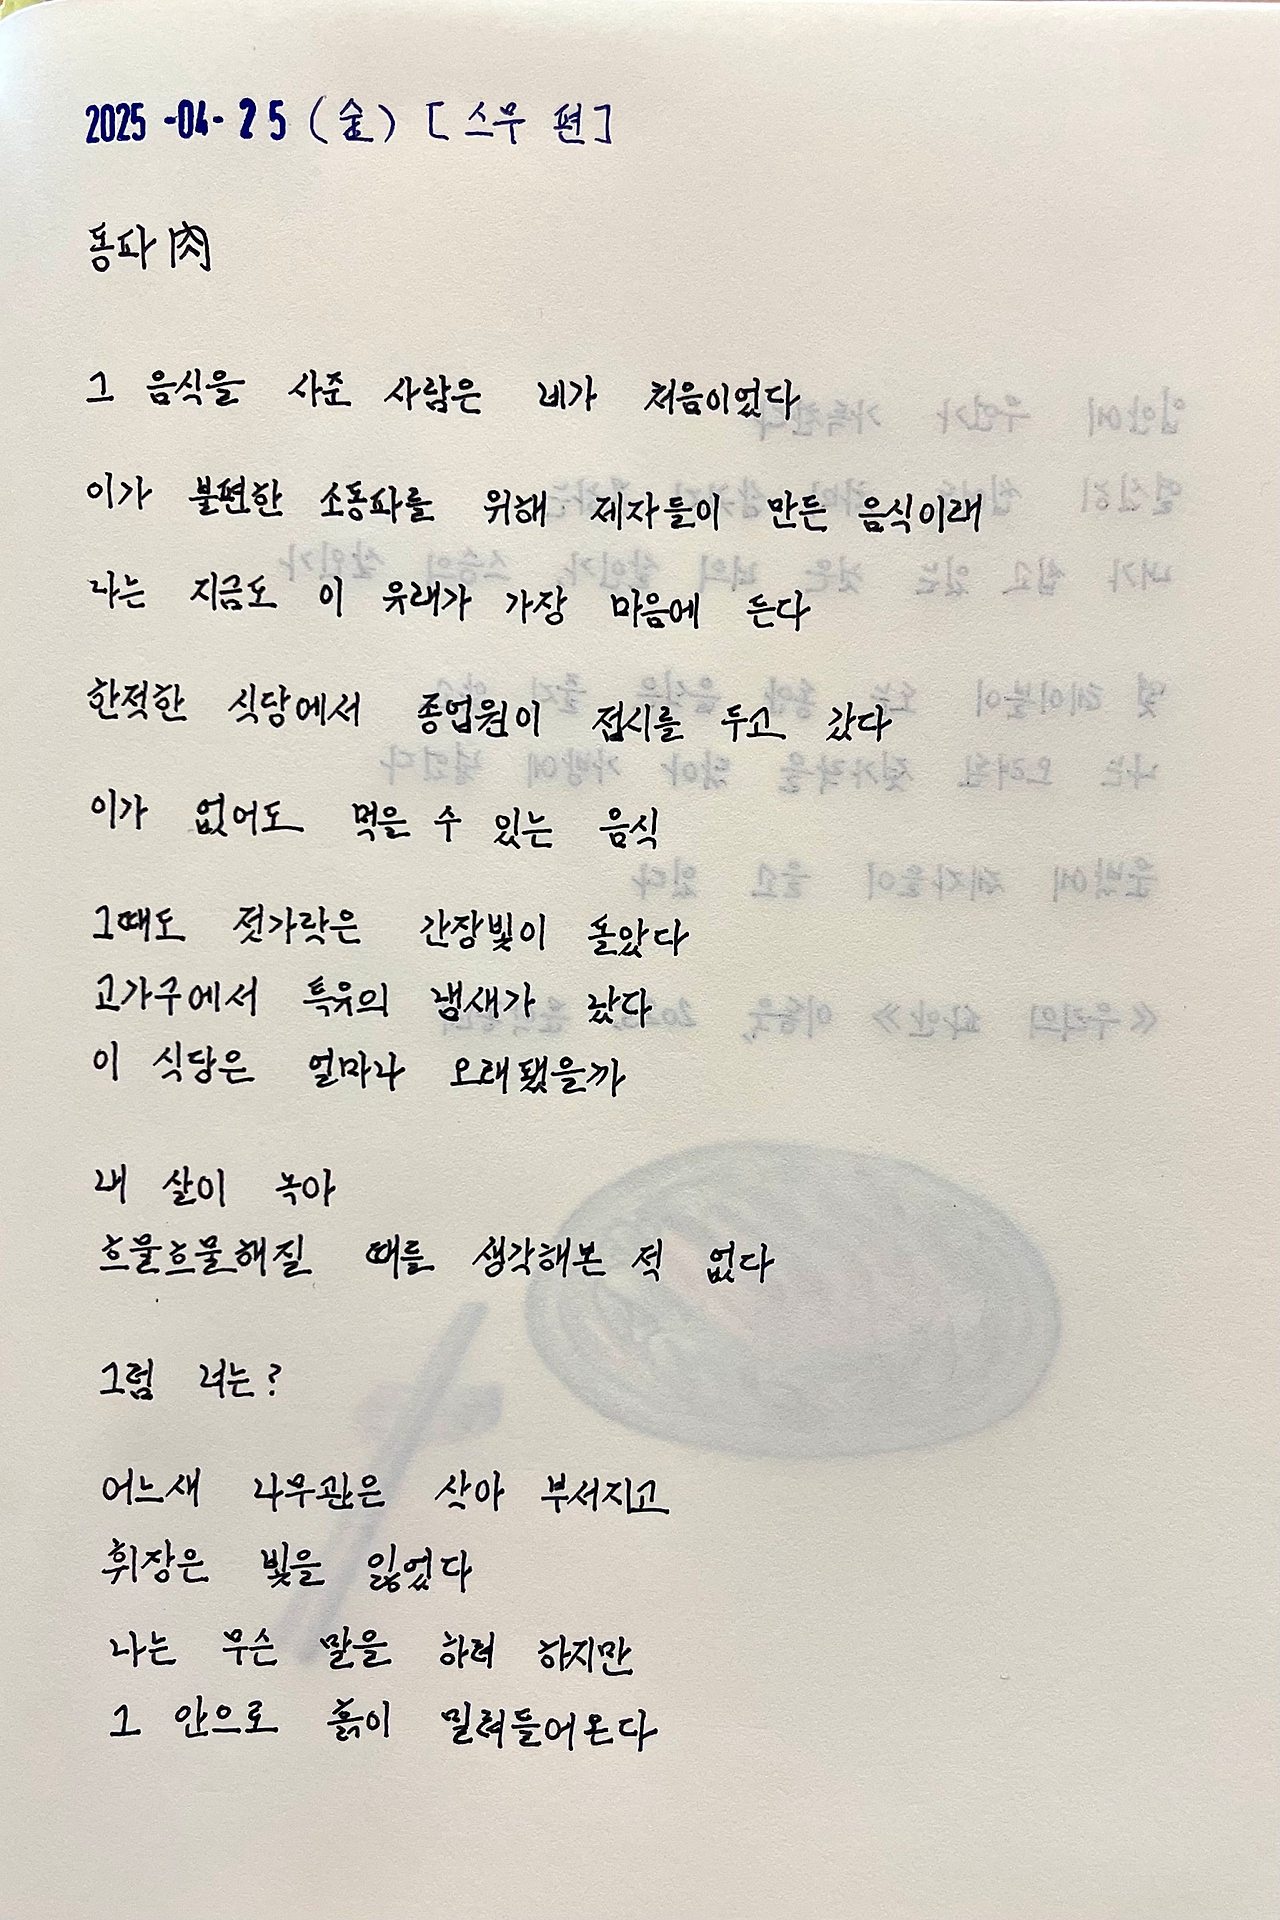 2025-04-25 (金) [스무 편]
동파肉
그 음식을 사준 사람은 네가 처음이었다
이가 불편한 소동파를 위해 제자들이 만든 음식이래
나는 지금도 이 유래가 가장 마음에 든다
한적한 식당에서 종업원이 접시를 두고 갔다
이가 없어도 먹을 수 있는 음식
그때도 젓가락은 간장빛이 돌았다
고가구에서 특유의 냄새가 났다
이 식당은 얼마나 오래됐을까
내 살이 녹아
흐물흐물해질 때를 생각해본 적 없다
그럼 너는?
어느새 나무관은 삭아 부서지고
휘장은 빛을 잃었다
나는 무슨 말을 하려 하지만
그 안으로 흙이 밀려들어온다